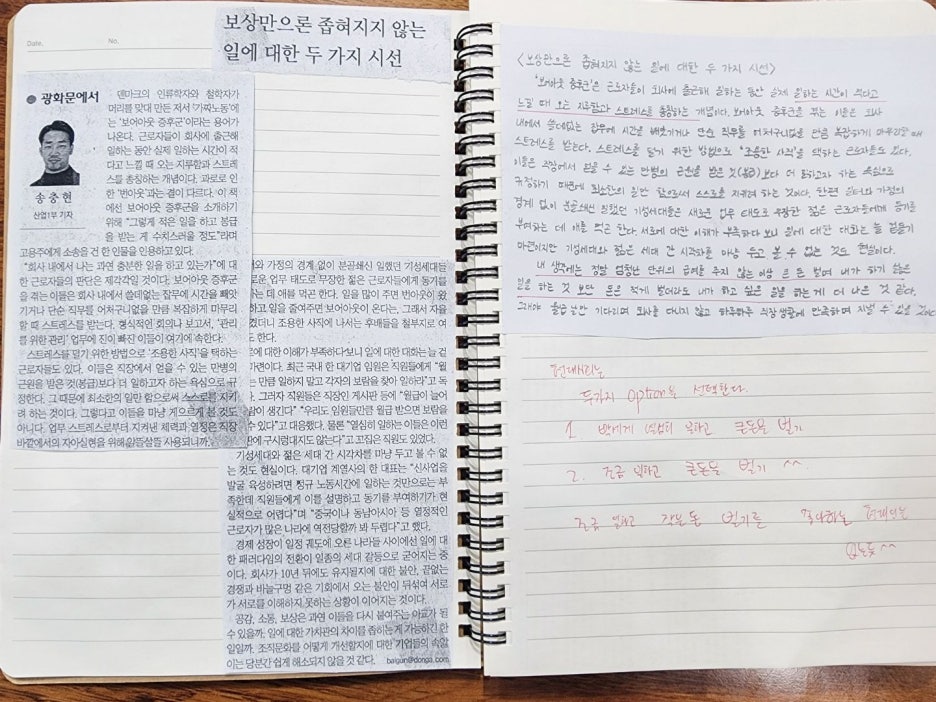 Date.
No.
보상만으론 좁혀지지 않는
일에 대한 두 가지 시선
광화문에서
송충현
산업1부 기자
덴마크의 인류학자와 철학자가
머리를 맞대 만든 저서 ‘가짜노동’에
는 ‘보어아웃 증후군’이라는 용어가
나온다. 근로자들이 회사에 출근해
일하는 동안 실제 일하는 시간이 적
다고 느낄 때 오는 지루함과 스트레
스를 총칭하는 개념이다. 과로로 인
한 ‘번아웃’과는 결이 다르다. 이 책
에선 보어아웃 증후군을 소개하기
위해 “그렇게 적은 일을 하고 봉급
을 받는 게 수치스러울 정도”라며
고용주에게 소송을 건 한 인물을 인용하고 있다.
“회사 내에서 나는 과연 충분한 일을 하고 있는가”에 대
한 근로자들의 판단은 제각각일 것이다. 보어아웃 증후군
을 겪는 이들은 회사 내에서 쓸데없는 잡무에 시간을 빼앗
기거나 단순 직무를 어처구니없을 만큼 복잡하게 마무리
할 때 스트레스를 받는다. 형식적인 회의나 보고서, ‘관리
를 위한 관리’ 업무에 진이 빠진 이들이 여기에 속한다.
스트레스를 덜기 위한 방법으로 ‘조용한 사직’을 택하는
근로자들도 있다. 이들은 직장에서 얻을 수 있는 만병의
근원을 받은 것(봉급)보다 더 일하고자 하는 욕심으로 규
정한다. 그 때문에 최소한의 일만 함으로써 스스로를 지키
려 하는 것이다. 그렇다고 이들을 마냥 게으르게 볼 것도
아니다. 업무 스트레스로부터 지켜낸 체력과 열정은 직장
바깥에서의 자아실현을 위해 알뜰살뜰 사용되니까.
와 가정의 경계 없이 분골쇄신 일했던 기성세대들
로운 업무 태도로 무장한 젊은 근로자들에게 동기를
하는 데 애를 먹곤 한다. 일을 많이 주면 번아웃이 왔
하고 일을 줄여주면 보어아웃이 온다는, 그래서 자율
겼더니 조용한 사직에 나서는 후배들을 철부지로 여
한다.
에 대한 이해가 부족하다보니 일에 대한 대화는 늘 겉
가련이다. 최근 국내 한 대기업 임원은 직원들에게 “월
는 만큼 일하지 말고 각자의 보람을 찾아 일하라”고 독
. 그러자 직원들은 직장인 게시판 등에 “월급이 늘어
람이 생긴다” “우리도 임원들만큼 월급 받으면 보람을
수 있다”고 대응했다. 물론 “열심히 일하는 이들은 이런
판에 구시렁대지도 않는다”고 꼬집은 직원도 있었다.
기성세대와 젊은 세대 간 시각차를 마냥 두고 볼 수 없
는 것도 현실이다. 대기업 계열사의 한 대표는 “신사업을
발굴 육성하려면 정규 노동시간에 일하는 것만으로는 부
족한데 직원들에게 이를 설명하고 동기를 부여하기가 현
실적으로 어렵다”며 “중국이나 동남아시아 등 열정적인
근로자가 많은 나라에 역전당할까 봐 두렵다”고 했다.
경제 성장이 일정 궤도에 오른 나라들 사이에선 일에 대
한 패러다임의 전환이 일종의 세대 갈등으로 굳어지는 중
이다. 회사가 10년 뒤에도 유지될지에 대한 불안, 끝없는
경쟁과 바늘구멍 같은 기회에서 오는 불안이 뒤섞여 서로
가 서로를 이해하지 못하는 상황이 이어지는 것이다.
공감, 소통, 보상은 과연 이들을 다시 붙여주는 아교가 될
수 있을까. 일에 대한 가치관의 차이를 좁히는 게 가능하긴 한
일일까. 조직문화를 어떻게 개선할지에 대한 기업들의 속앓
이는 당분간 쉽게 해소되지 않을 것 같다.
baigun@donga.com
<보상만으로 좁혀지지 않는 일에 대한 두 가지 시선>
‘보어아웃 증후군’은 근로자들이 회사에 출근해 일하는 동안 실제 일하는 시간이 적다고
느낄 때 오는 지루함과 스트레스를 총칭하는 개념이다. 보어아웃 증후군을 겪는 이들은 회사
내에서 쓸데없는 잡무에 시간을 빼앗기거나 단순 직무를 어처구니없을 만큼 복잡하게 마무리할 때
스트레스를 받는다. 스트레스를 덜기 위한 방법으로 ‘조용한 사직’을 택하는 근로자들도 있다.
이들은 직장에서 얻을 수 있는 만병의 근원을 받은 것(봉급)보다 더 일하고자 하는 욕심으로
규정하기 때문에 최소한의 일만 함으로써 스스로를 지키려 하는 것이다. 한편 일터와 가정의
경계 없이 분골쇄신 일했던 기성세대들은 새로운 업무 태도로 무장한 젊은 근로자들에게 동기를
부여하는 데 애를 먹곤 한다. 서로에 대한 이해가 부족하다 보니 일에 대한 대화는 늘 겉돌기
마련이지만 기성세대와 젊은 세대 간 시각차를 마냥 두고 볼 수 없는 것도 현실이다.
내 생각에는 정말 엄청난 단위의 급여를 주지 않는 이상 큰 돈 벌며 내가 하기 싫은
일을 하는 것 보단 돈은 적게 벌더라도 내가 하고 싶은 일을 하는 게 더 나은 것 같다.
그래야 월급날만 기다리며 회사를 다니지 않고 하루하루 직장생활에 만족하며 지낼 수 있을
현대인는
두가지 option을 선택한다.
1. 빡세게 열심히 일하고 큰돈을 벌기
2. 조금 일하고 큰돈을 벌기 ^^.
조금 일하고 작은 돈 벌기를 현대인는
없는듯 ^^